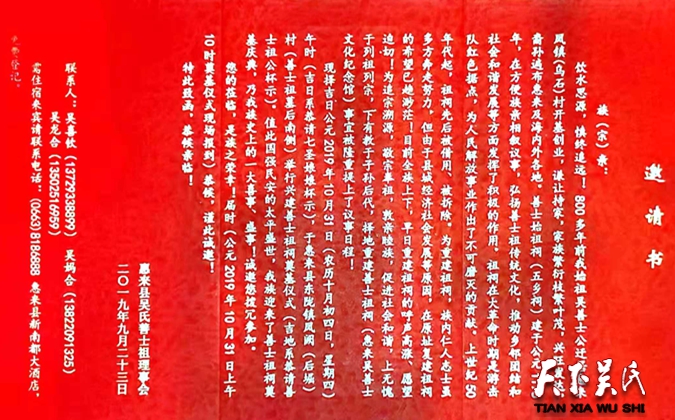 邀请书
族（宗）亲：
饮水思源，慎终追远！800多年前我始祖吴善士公迁
凤镇（乌石）村开基创业，谦让持家，家族繁衍枝繁叶茂，兴旺
裔孙遍布惠来及海内外各地。善士始祖祠（五乡祠）建于公元
年，在方便族亲相叙议事，弘扬善士祖传统文化，推动乡邻团结和
社会和谐发展等方面发挥了积极的作用，祖祠在大革命时期是游击
队红色据点，为人民解放事业作出了不可磨灭的贡献。上世纪50
年代起，祖祠先后被借用、被拆除。为重建祖祠，族内仁人志士虽
多方奔走努力，但由于县域经济社会发展等原因，在原址复建祖祠
的希望已越渺茫！目前全族上下，早日重建祖祠的呼声高涨、愿望
迫切！为追宗溯源，敬宗奉祖，敦亲睦族，促进社会和谐，上无愧
于列祖列宗，下有教于子孙后代，择地重建善士祖祠（惠来吴善士
文化纪念馆）事宜被隆重提上了议事日程！
现择吉日公元2019年10月31日（农历十月初四日，星期四）
午时（吉日系恭请七圣娘圣杯示）于惠来县东陇镇凤阁（后堀）
村（善士祖墓后南侧）举行兴建善士祖祠奠基仪式（吉地系恭请善
士祖公杯示）。值此国强民安的太平盛世，我族迎来了善士祖祠奠
基庆典，乃我族史上的一大喜事、盛事，诚邀您拨冗参加。
您的莅临，是族之荣幸！届时（公元2019年10月31日上午
10时前奠基仪式现场报到）恭候，谨此诚邀！
特此致函，恭候宗临！
惠来县吴氏善士祖理事会
二〇一九年九月二十三日
联系人：吴喜钦（13729338899） 吴妈合（13822091325）
吴龙合（13502516959）
需住宿来宾请联系电话：（0663）8185888 惠来县新南都大酒店，
免费登记。
天下吴氏
TIAN XIA WU SHI